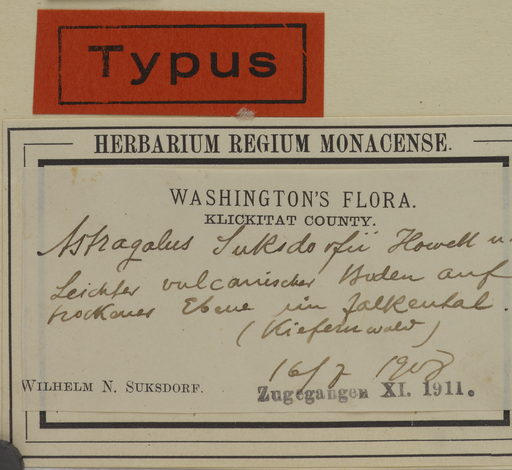 Typus
HERBARIUM REGIUM MONACENSE.
WASHINGTON'S FLORA.
KLICKITAT COUNTY.
Astragalus Suksdorfii Howell n.
Leichter vulcanischer Boden auf
trockener Ebene im Falkenthal.
(Kiefernwald)
16/7 1908
WILHELM N. SUKSDORF.
Zugegangen XI. 1911.